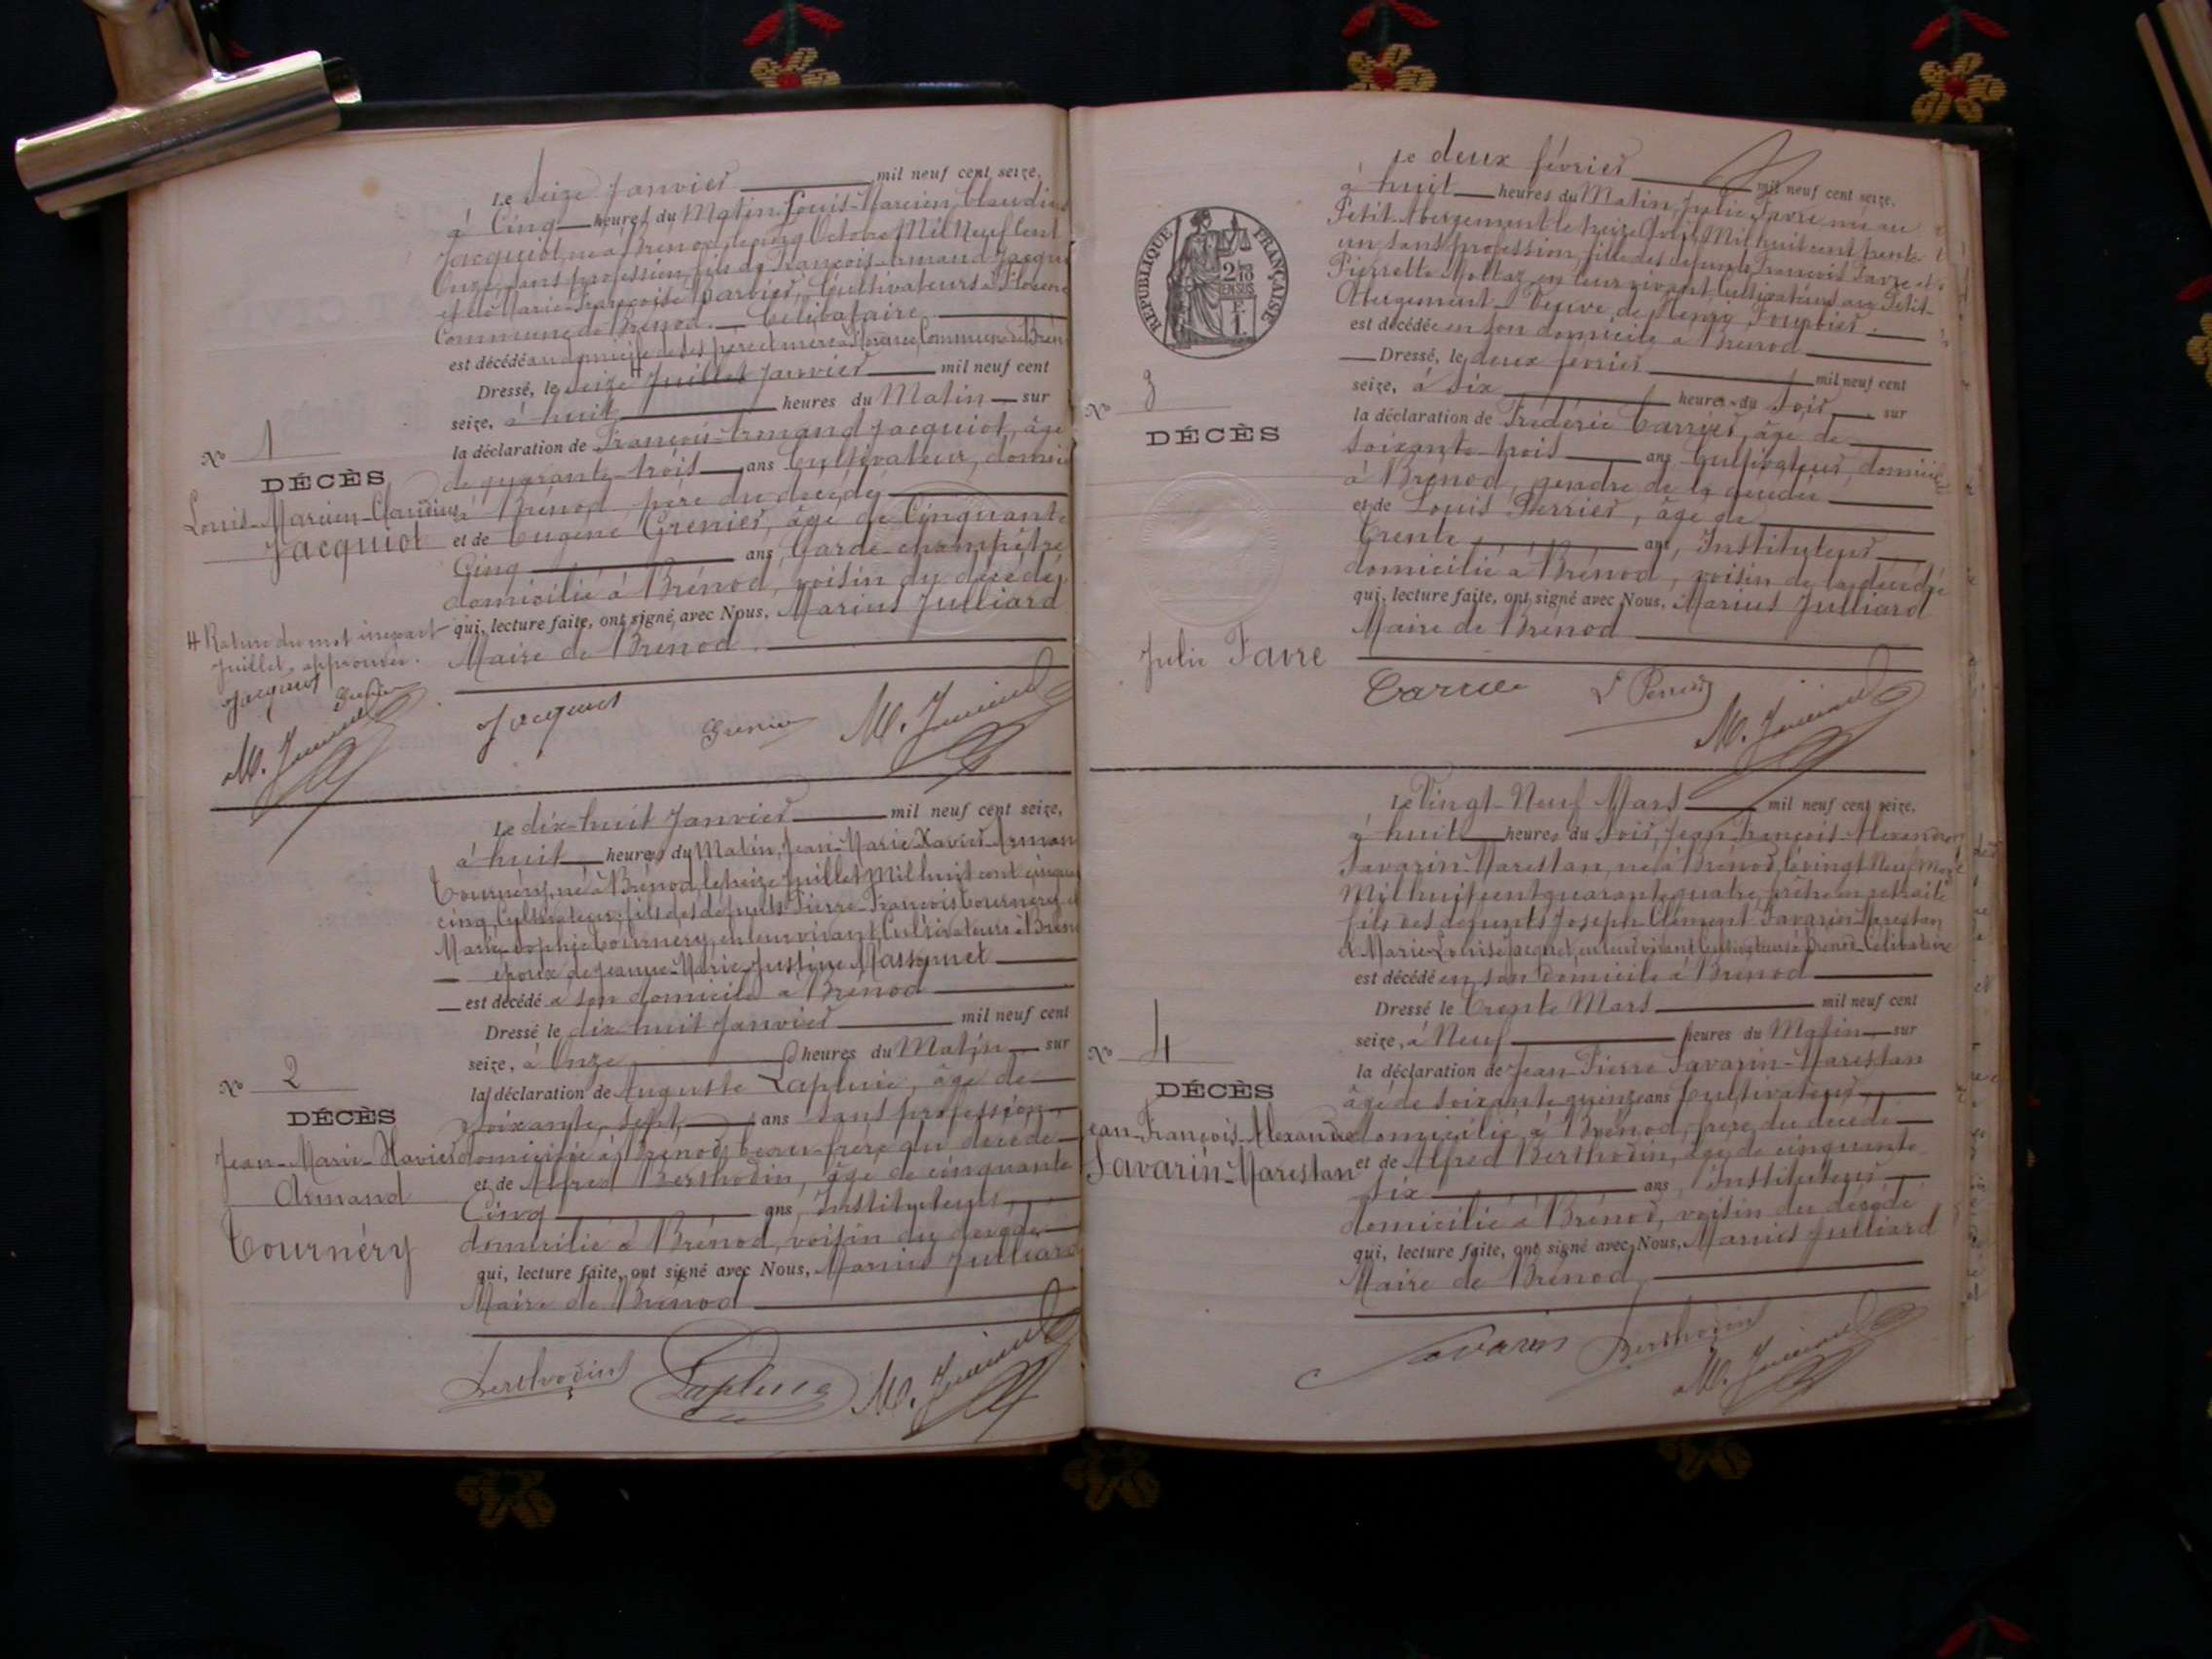 Le seize Janvier mil neuf cent seize,
à Cinq heures du Matin, Louis-Marcien, Claudius
Jacquiot, né à Brénod, le Octobre Mil Neuf Cent
Onze, sans profession, fils de François-Armand Jacqui
et de Marie-Françoise Barbier, Cultivateurs à
Commune de Brénod. Célibataire
est décédé au domicile de ses père et mère à Commune de Brén
Dressé, le seize Juillet Janvier mil neuf cent
seize, à huit heures du Matin sur
la déclaration de François-Armand Jacquiot, âgé
de quarante-trois ans Cultivateur, domici
à Brénod, père du décédé
et de Eugène Grenier, âgé de Cinquante
Cinq ans, Garde-champêtre
domicilié à Brénod, voisin du décédé,
qui, lecture faite, ont signé avec Nous, Marius Julliard
Maire de Brénod.
No 1
DÉCÈS
Louis-Marcien-Claudius
Jacquiot
Rature du mot inexact
Juillet, approuvée.
Jacquiot Grenier
M. Julliard
Jacquiot Grenier M. Julliard
Le dix-huit Janvier mil neuf cent seize,
à huit heures du Matin, Jean-Marie-Xavier-Arman
Tournéry, né à Brénod, le treize Juillet Mil huit cent cinqua
cinq, Cultivateur, fils des défunts Pierre-François Tournéry et
Marie-Sophie Tournéry, en leur vivant Cultivateurs à Bréno
époux de Jeanne-Marie-Justine Massonnet
est décédé à son domicile à Brénod
Dressé le dix-huit Janvier mil neuf cent
seize, à Onze heures du Matin sur
la déclaration de Auguste Lapluie, âgé de
soixante-sept ans sans profession
domicilié à Brénod, beau-frère du décédé
et de Alfred Berthodin, âgé de cinquante
Cinq ans, Instituteur,
domicilié à Brénod, voisin du décédé
qui, lecture faite, ont signé avec Nous, Marius Julliard
Maire de Brénod
No 2
DÉCÈS
Jean-Marie-Xavier
Armand
Tournéry
Berthodin Lapluie M. Julliard
Le deux février mil neuf cent seize,
à huit heures du Matin, Julie Favre née au
Petit-Abergement le treize Avril Mil huit cent trente
un sans profession, fille des défunts François Favre et
Pierrette Mollaz, en leur vivant Cultivateurs au Petit-
Abergement. Veuve de Henry
est décédée en son domicile à Brénod
Dressé, le deux février mil neuf cent
seize, à six heures du soir, sur
la déclaration de Frédéric Carrier, âgé de
soixante-trois ans Cultivateur, domicilié
à Brénod, gendre de la décédée
et de Louis Perrier, âgé de
Trente ans, Instituteur
domicilié à Brénod, voisin de la décédée
qui, lecture faite, ont signé avec Nous, Marius Julliard
Maire de Brénod
RÉPUBLIQUE FRANÇAISE
No 3
DÉCÈS
Julie Favre
Carrier L Perrier
M. Julliard
Le Vingt-Neuf Mars mil neuf cent seize,
à huit heures du soir, Jean-François-Alexandre
Savarin-Marestan, né à Brénod, le vingt Neuf Mars
Mil huit cent quarante quatre, prêtre en retraite
fils des défunts Joseph-Clément Savarin-Marestan
& Marie-Louise Jacquet, en leur vivant Cultivateurs à Brénod. Célibataire
est décédé en son domicile à Brénod
Dressé le Trente Mars mil neuf cent
seize, à Neuf heures du Matin sur
la déclaration de Jean-Pierre Savarin-Marestan
âgé de soixante quinze ans Cultivateur
domicilié à Brénod, frère du décédé
et de Alfred Berthodin, âgé de cinquante
six ans, Instituteur
domicilié à Brénod, voisin du décédé
qui, lecture faite, ont signé avec Nous, Marius Julliard
Maire de Brénod
No 4
DÉCÈS
Jean-François-Alexandre
Savarin-Marestan
Savarin Berthodin
M. Julliard